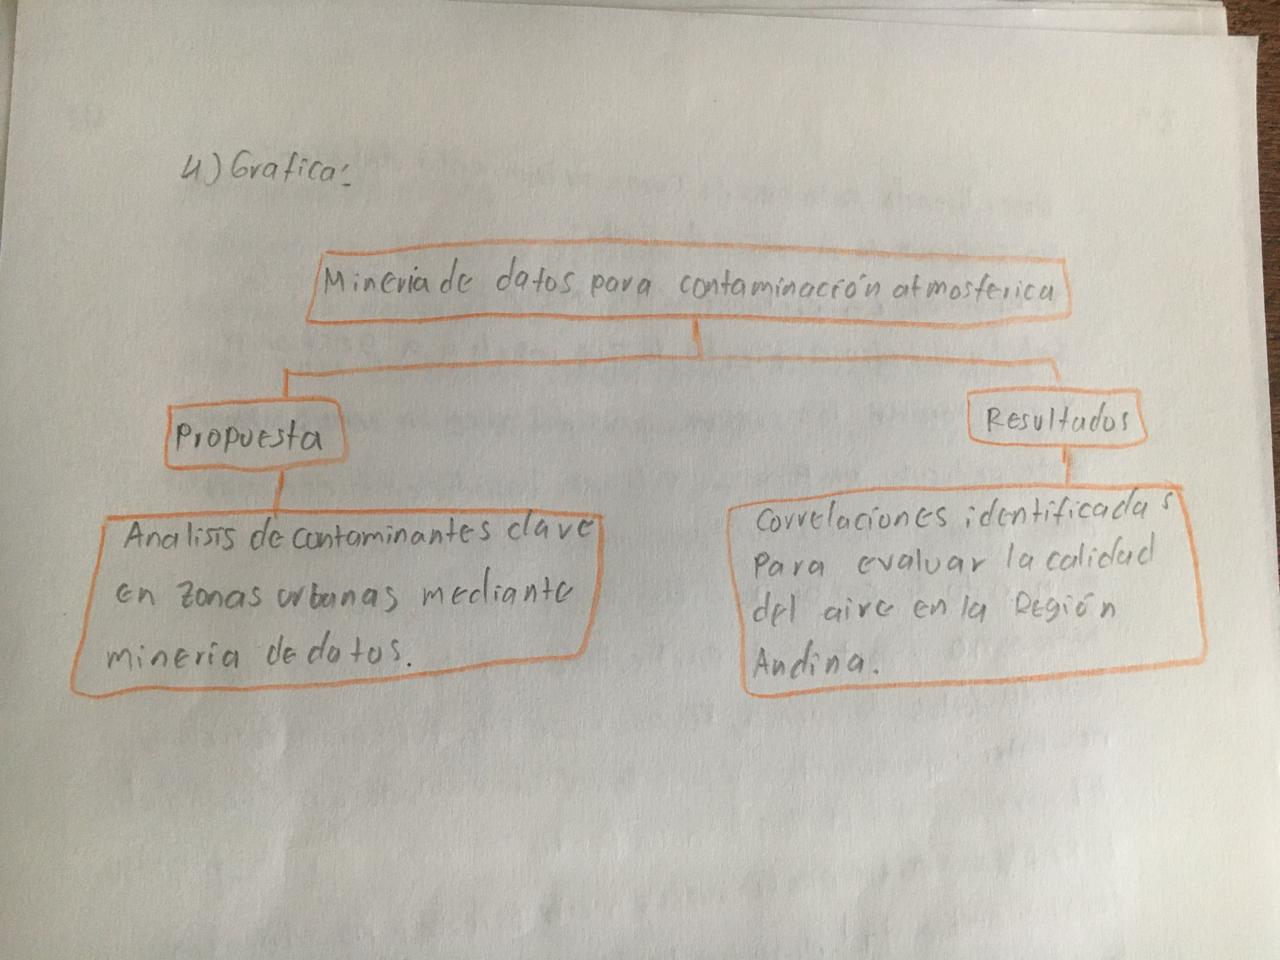 4) Grafica:
Mineria de datos para contaminación atmosferica
Propuesta
Resultados
Analisis de contaminantes clave
en zonas urbanas mediante
mineria de datos.
Correlaciones identificadas
para evaluar la calidad
del aire en la Región
Andina.